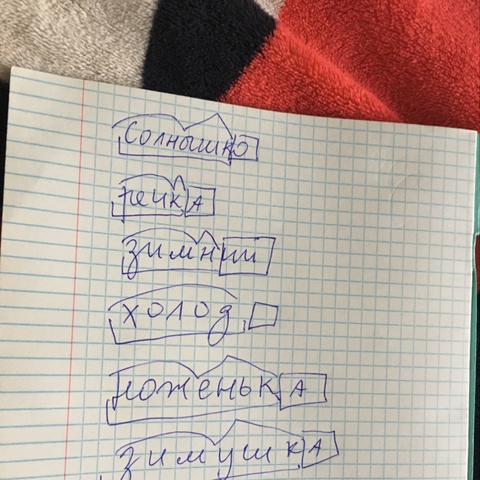 солнышко
речка
зимний
холод
ноженька
зимушка